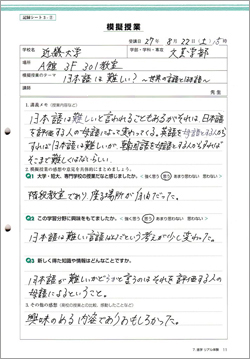 試験シート3-②
模擬授業
受講日 27年 8月22日(土) 5時
学校名 近畿大学 学部・学科・専攻 文芸学部
場所 A館 3F 301教室
模擬授業のテーマ 日本語は難しい? ～世界の言語と日本語～
講師 先生
1. 講義メモ
日本語は難しいと言われることもあるがそれは、日本語
を評価する人の母語によって変わってくる。英語を母語とする人から
すれば日本語は難しいが、韓国語を母語とする人からすれば
そこまで難しくはないらしい。
2. 模擬授業の感想や意見を具体的にまとめましょう。
Q1 大学・短大、専門学校の授業だなと感じましたか。 <強く思う 思う あまり思わない 思わない>
階段教室であり座る場所が自由だった。
Q2 この学習分野に興味をもてましたか。 <強く思う 思う あまり思わない 思わない>
日本語は難しい言語だなという考えが少し変わった。
Q3 新しく得た知識や情報はどんなことですか。
日本語が難しいかどうかと言うのはそれを評価する人の
母語によるということ。
3. その他の感想
興味のある内容でありおもしろかった。
11